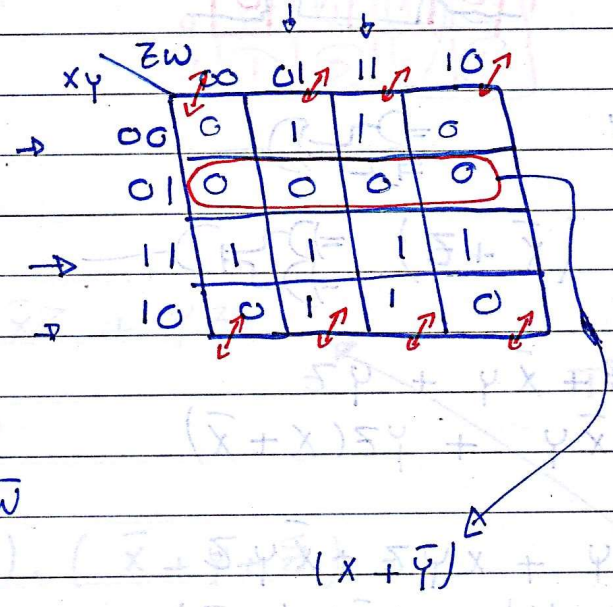 ZW
XY 00 01 11 10
00 0 1 1 0
01 0 0 0 0
11 1 1 1 1
10 0 1 1 0
W̅
(X + Y̅)